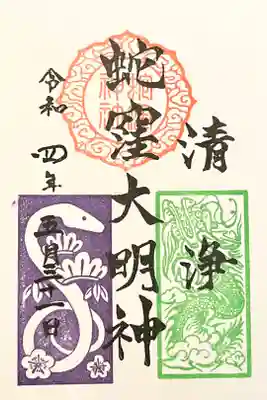 清浄
蛇窪大明神
令和四年
五月三十一日